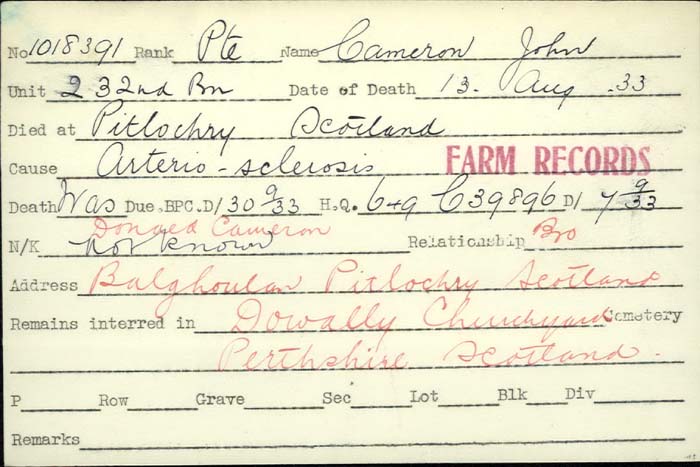 No 1018391 Rank Pte Name Cameron John
Unit 232nd Bn Date of Death 13. Aug. 33
Died at Pitlochry Scotland
Cause Arterio-sclerosis FARM RECORDS
Death Was Due. BPC. D/ 30 9/33 H.Q. 649 C39896 D/ 7 9/33
Donald Cameron
N/K not known Relationship Bro
Address Balghoulan Pitlochry Scotland
Remains interred in Dowally Churchyard Cemetery
Perthshire Scotland.
P Row Grave Sec Lot Blk Div
Remarks